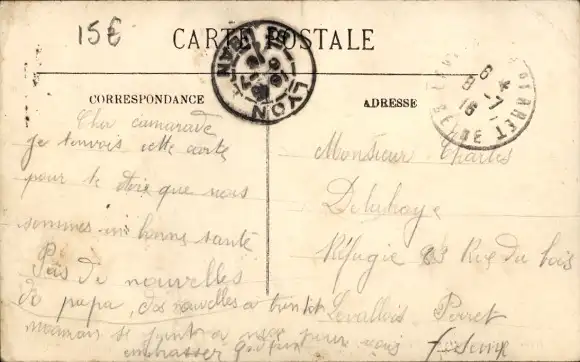 15€
CARTE POSTALE
LYON
CORRESPONDANCE
ADRESSE
Cher camarade
je t'envois cette carte
pour te dire que nous
sommes en bonne santé
Pas de nouvelles
de papa, des nouvelles a bientot
maman se joint a
embrasser
Monsieur Charles
Delahaye
Réfugié 23 Rue du bois
Levallois Perret
Seine
LEVALLOIS PERRET
SEINE
8 7 16